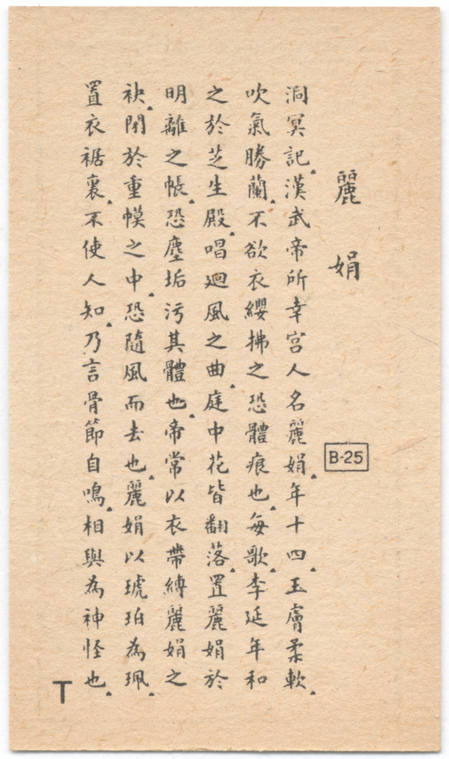 麗娟
洞冥記.漢武帝所幸宮人名麗娟.年十四.玉膚柔軟.
吹氣勝蘭.不欲衣纓拂之恐體痕也.每歌.李延年和
之於芝生殿.唱迴風之曲.庭中花皆翻落.置麗娟於
明離之帳.恐塵垢污其體也.帝常以衣帶縛麗娟之
袂.閉於重幙之中.恐隨風而去也.麗娟以琥珀為珮.
置衣裾裏.不使人知.乃言骨節自鳴.相與為神怪也.
B-25
T